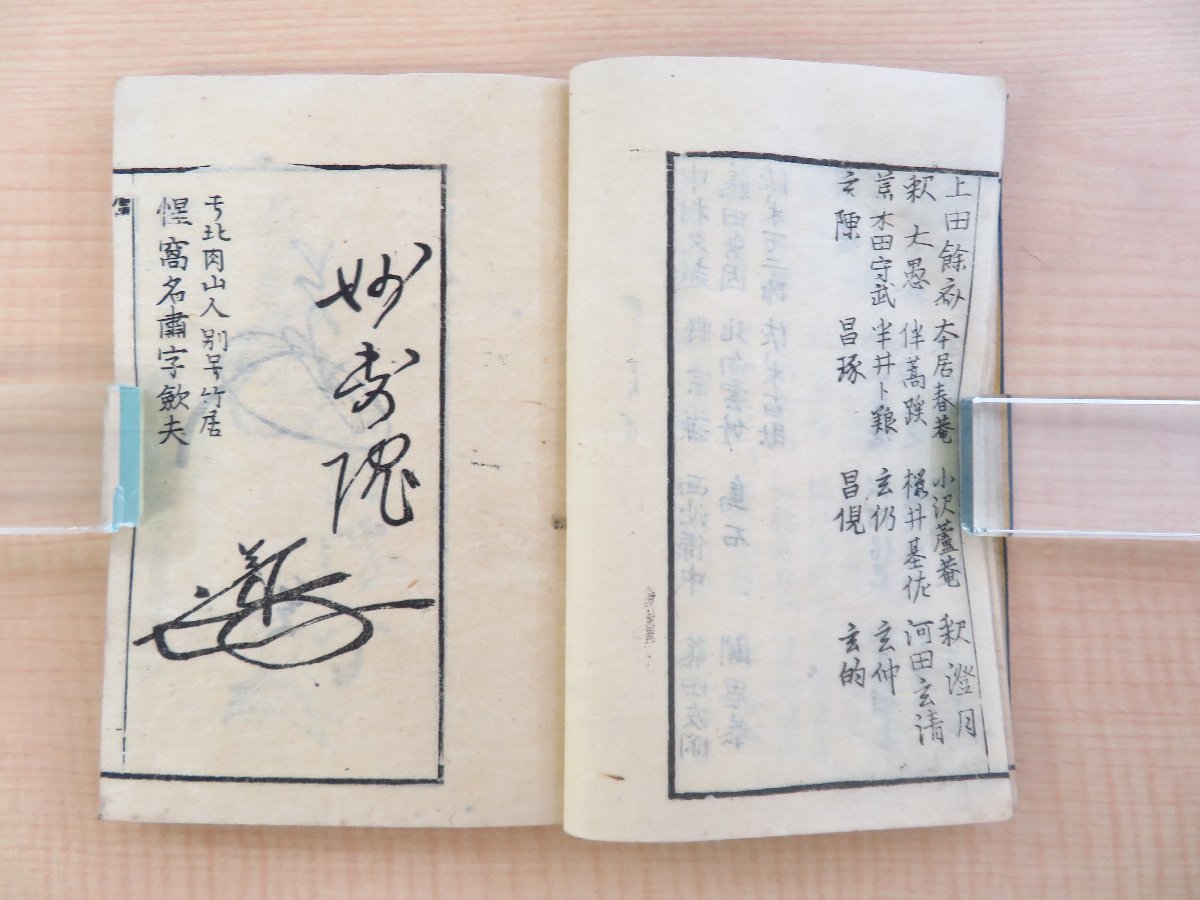 上田餘斎 本居春菴 小沢蘆菴 釈 澄月
釈 大愚 伴蒿蹊 櫻井基佐 河田玄清
荒木田守武 半井卜 玄仍 玄仲
玄陳 昌琢 昌俔 玄的
妙寿院
号北肉山人別号竹居
惺窩名肅字歛夫